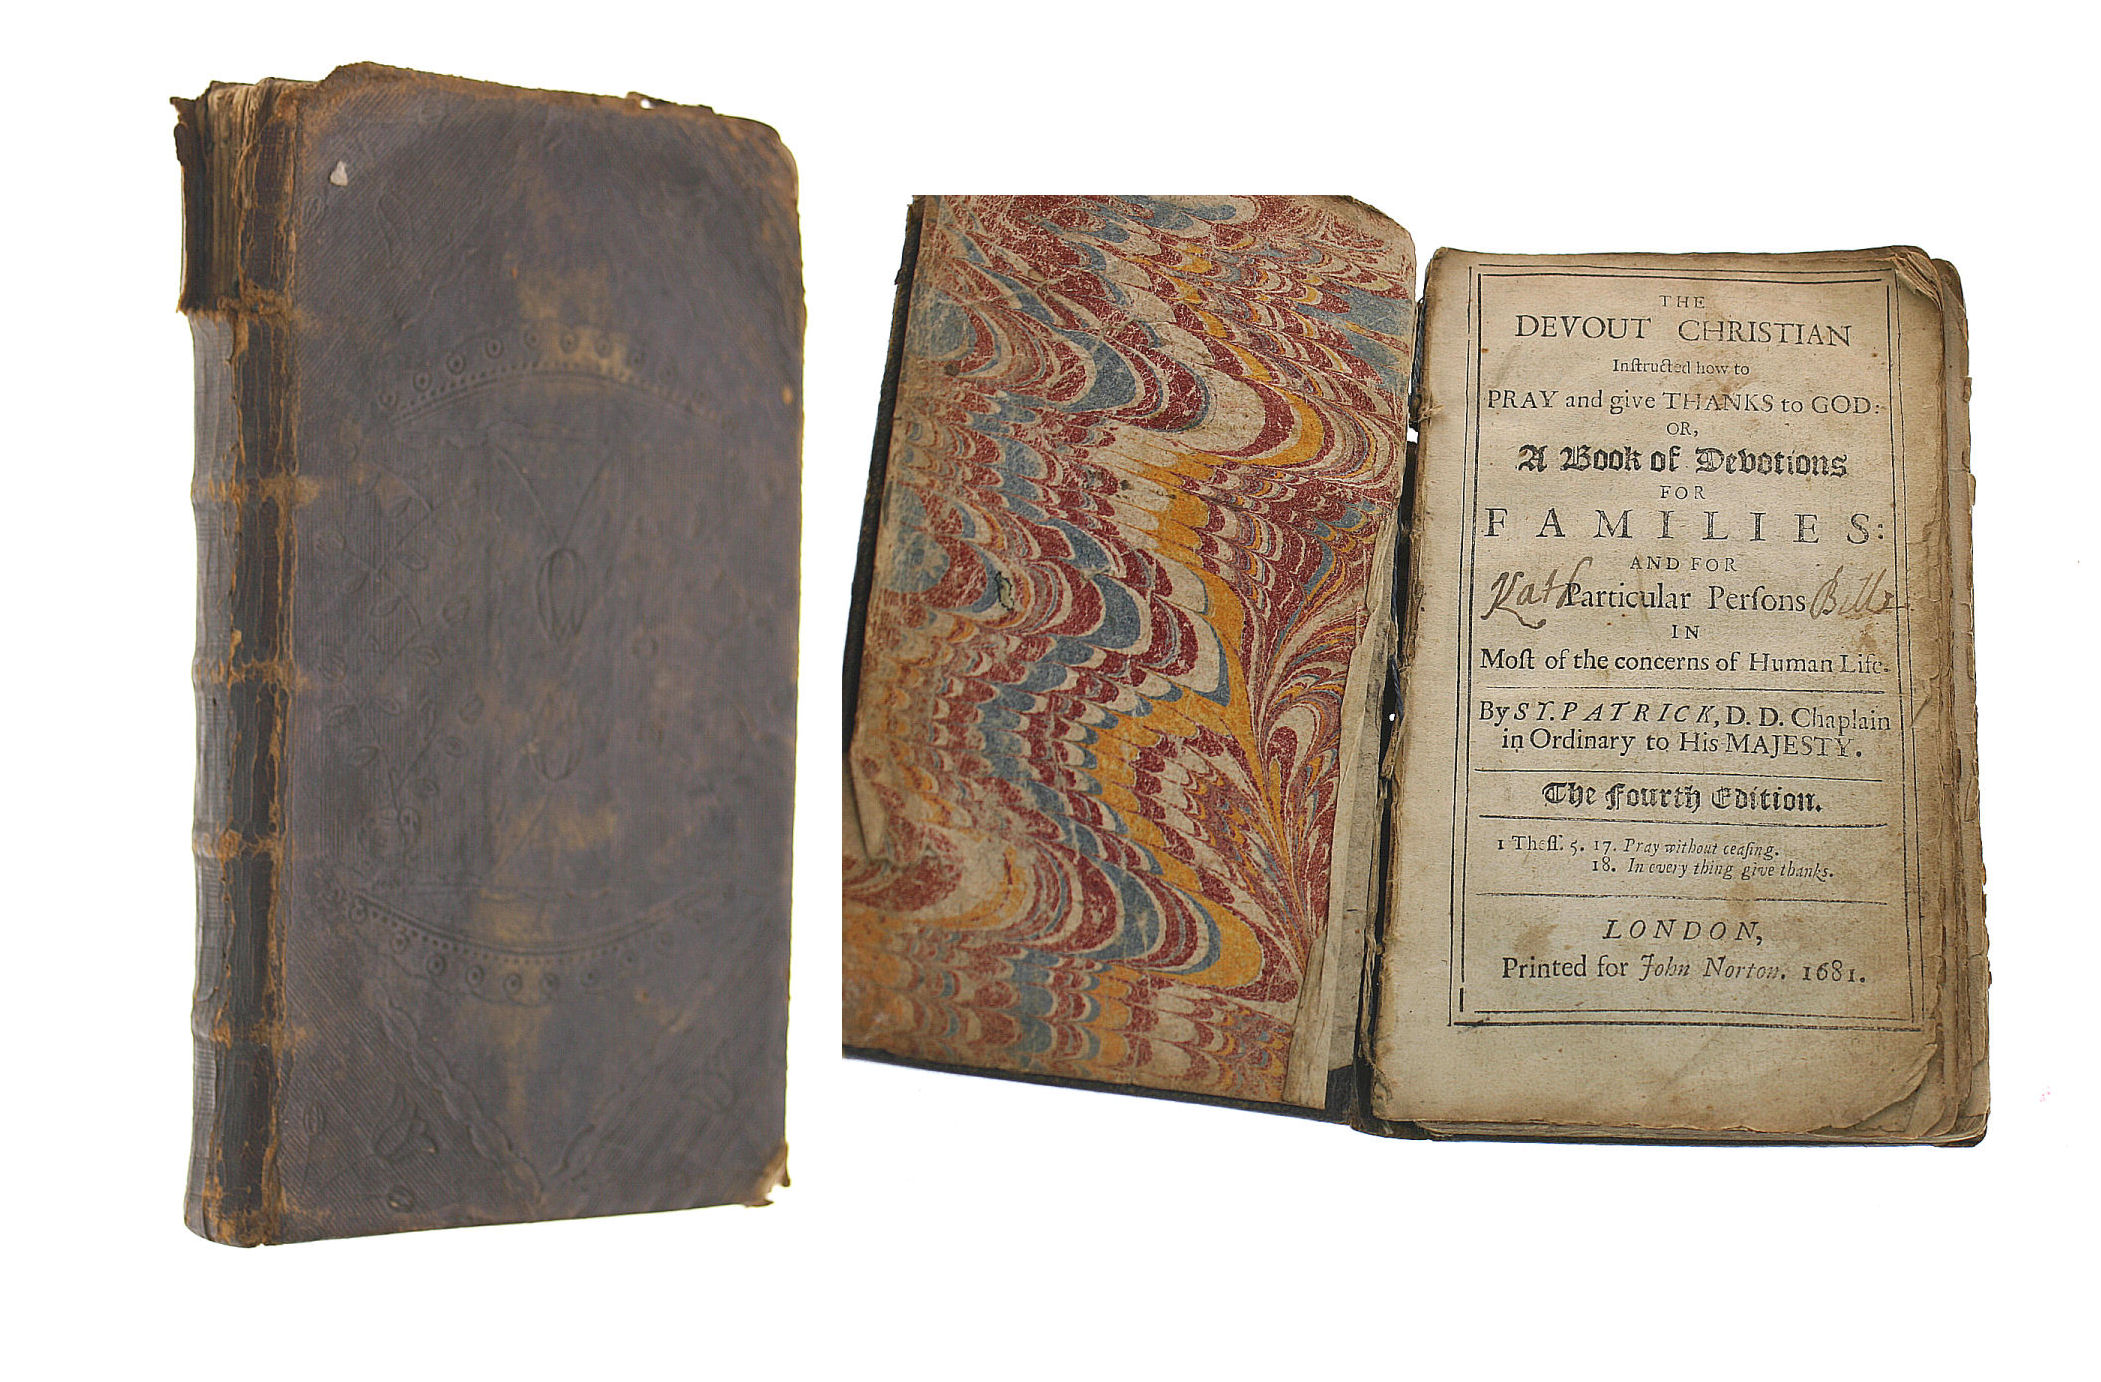 THE
DEVOUT CHRISTIAN
Inſtructed how to
PRAY and give THANKS to GOD:
OR,
A Book of Devotions
FOR
FAMILIES:
AND FOR
Kath Particular Perſons Bill
IN
Moſt of the concerns of Human Life.
By SY. PATRICK, D. D. Chaplain
in Ordinary to His MAJESTY.
The Fourth Edition.
1 Theſſ. 5. 17. Pray without ceaſing.
18. In every thing give thanks.
LONDON,
Printed for John Norton. 1681.